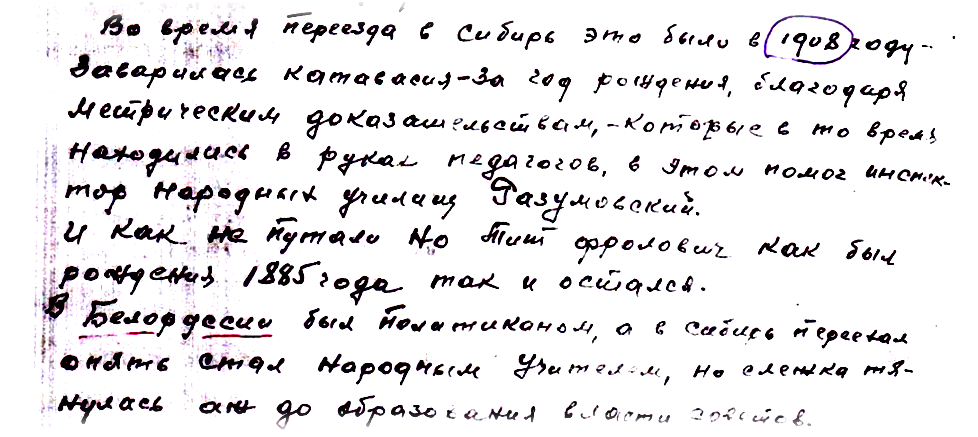 Во время переезда в Сибирь это было в 1908 году-
Заварилась катавасия-за год рождения, благодаря
метрическим доказательствам,-которые в то время
находились в руках педагогов, в этом помог инспек-
тор народных училищ Разумовский.
И как не путали но Тит Фролович как был
рождения 1885 года так и остался.
В Белоруссии был политиканом, а в сибирь переехал
опять стал народным Учителем, но слежка тя-
нулась аж до образования власти советов.